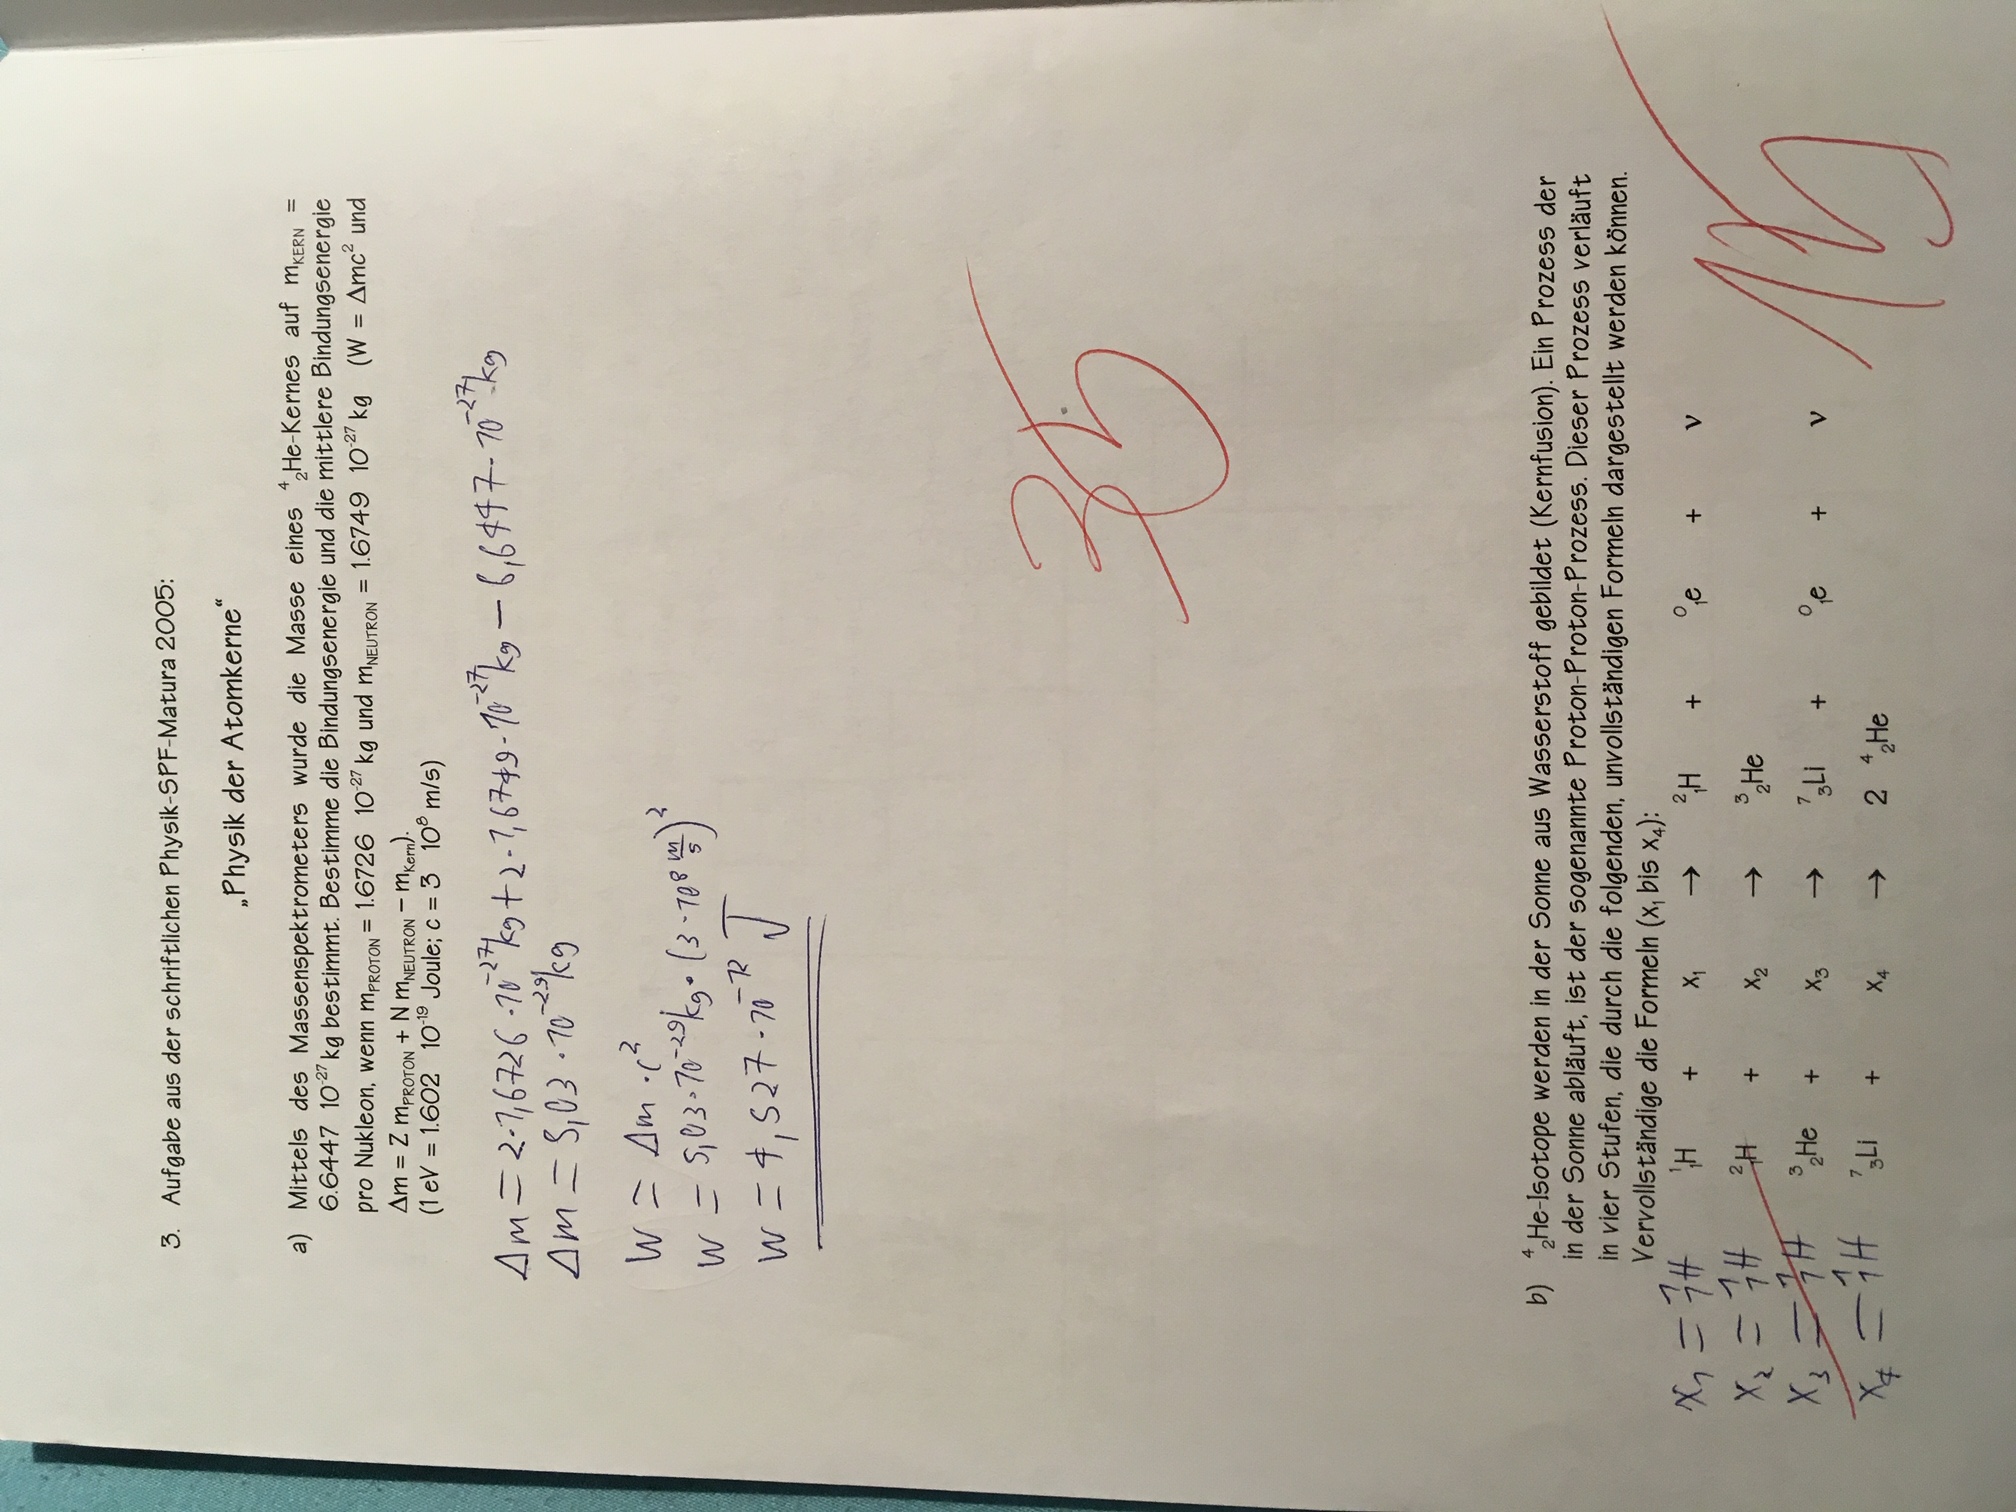 3. Aufgabe aus der schriftlichen Physik-SPF-Matura 2005:
„Physik der Atomkerne“
a) Mittels des Massenspektrometers wurde die Masse eines ⁴₂He-Kernes auf m_KERN =
6.6447 10⁻²⁷ kg bestimmt. Bestimme die Bindungsenergie und die mittlere Bindungsenergie
pro Nukleon, wenn m_PROTON = 1.6726 10⁻²⁷ kg und m_NEUTRON = 1.6749 10⁻²⁷ kg (W = Δmc² und
Δm = Z m_PROTON + N m_NEUTRON – m_Kern).
(1 eV = 1.602 10⁻¹⁹ Joule; c = 3 10⁸ m/s)
Δm = 2·1,6726·10⁻²⁷kg + 2·1,6749·10⁻²⁷kg – 6,6447·10⁻²⁷kg
Δm = 5,03·10⁻²⁹kg
W = Δm·c²
W = 5,03·10⁻²⁹kg·(3·10⁸ m/s)²
W = 4,527·10⁻¹² J
35
b) ⁴₂He-Isotope werden in der Sonne aus Wasserstoff gebildet (Kernfusion). Ein Prozess der
in der Sonne abläuft, ist der sogenannte Proton-Proton-Prozess. Dieser Prozess verläuft
in vier Stufen, die durch die folgenden, unvollständigen Formeln dargestellt werden können.
Vervollständige die Formeln (x₁ bis x₄):
x₁ = ¹₁H ¹₁H + x₁ → ²₁H + ⁰₁e + ν
x₂ = ¹₁H ²₁H + x₂ → ³₂He
x₃ = ¹₁H ³₂He + x₃ → ⁷₃Li + ⁰₁e + ν
x₄ = ¹₁H ⁷₃Li + x₄ → 2 ⁴₂He
15